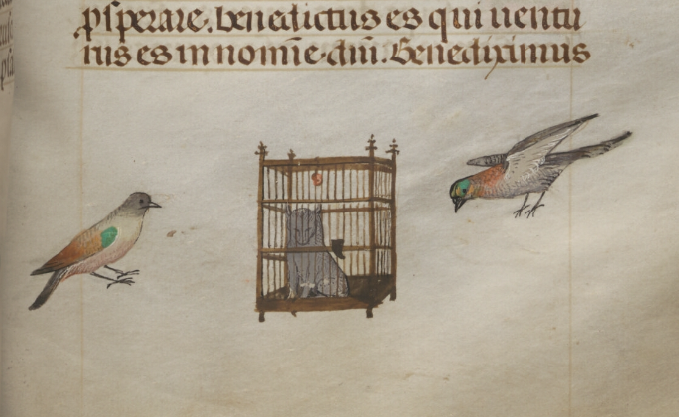 ꝓsperare. benedictus es qui uentu
rus es in nomīe dm̄i. Benediximus